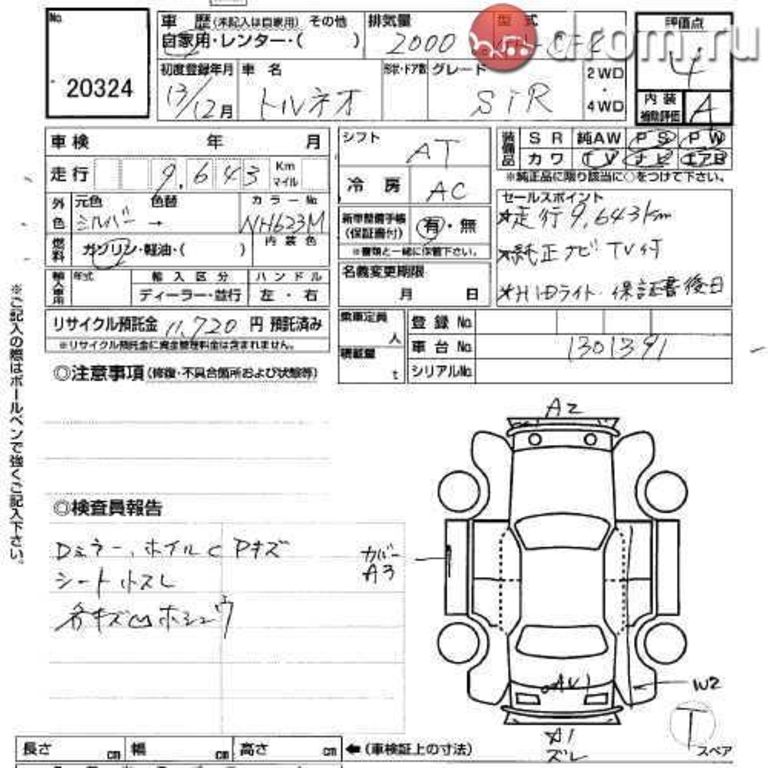 No.
20324
車歴(未記入は自家用) その他
自家用・レンター・( )
排気量
2000
型式
drom.ru
評価点
4
内装
補助評価
A
初度登録年月
13/12月
車名
トルネオ
形状・ドア数
グレード
SiR
2WD
・
4WD
車検 年 月
走行 9,643 Km マイル
外色
元色 色替 カラーNo
シルバー → NH623M
燃料
ガソリン・軽油・( )
内装色
輸入車用
年式 輸入区分 ハンドル
ディーラー・並行 左・右
リサイクル預託金 11,720 円 預託済み
※リサイクル預託金に資金管理料金は含まれません。
シフト AT
冷房 AC
新車整備手帳
(保証書付)
有・無
※書類と一緒に保管下さい。
名義変更期限
月 日
乗車定員
人
積載量
t
装備品
SR 純AW PS PW
カワ TV ナビ エアB
※純正品に限り該当に○をつけて下さい。
セールスポイント
*走行9,643km
*純正ナビTV付
*HIDライト・保証書後日
登録No.
車台No. 1301391
シリアルNo.
◎注意事項(修復・不具合箇所および状態等)
◎検査員報告
Dミラー、ホイルC Pキズ
シートスレ
各キズ凹ホシュウ
※ご記入の際はボールペンで強くご記入下さい。
A2
カバー
A3
W2
A1
ズレ
T
スペア
長さ cm 幅 cm 高さ cm ←(車検証上の寸法)